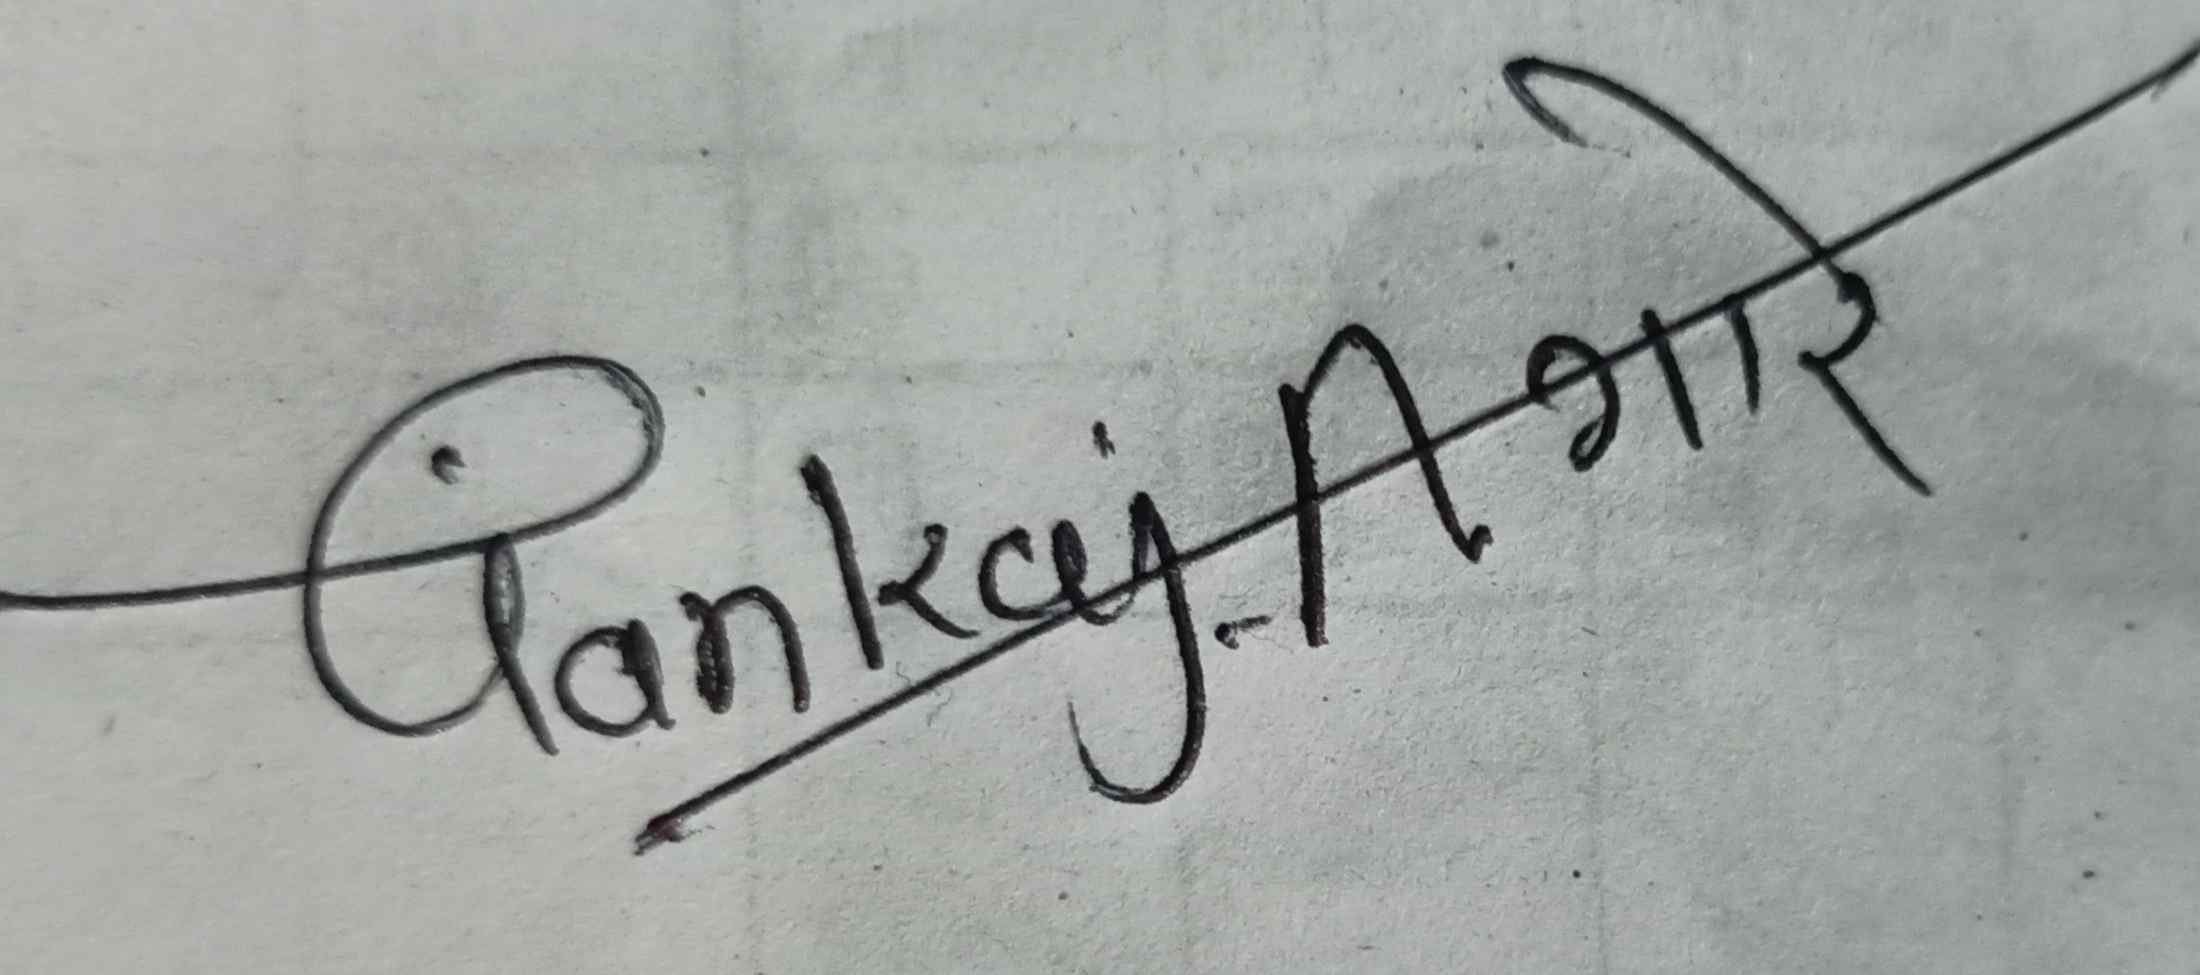 Pankaj.A गोरे